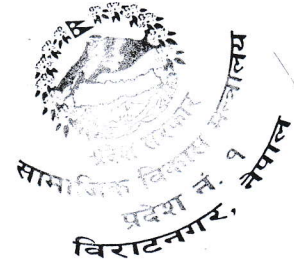 प्रदेश सरकार
सामाजिक विकास मन्त्रालय
प्रदेश नं. १
विराटनगर, नेपाल